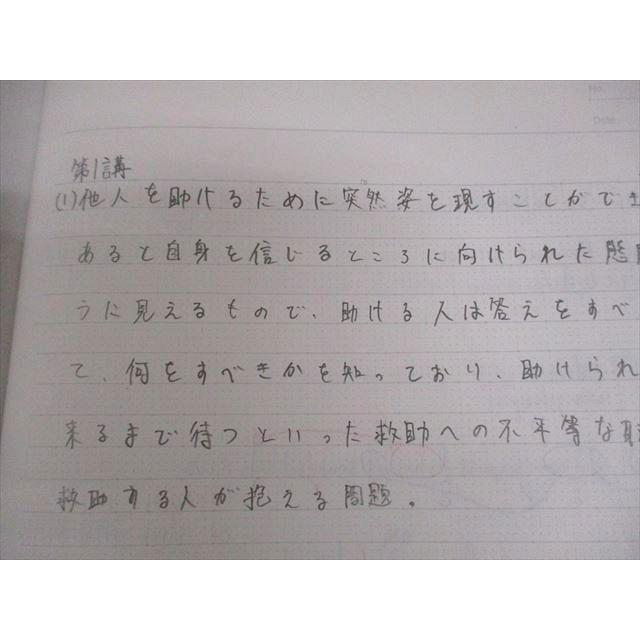 No.
Date
第1講
(1)他人を助けるために突然姿を現すことがで
あると自身を信じるところに向けられた態
うに見えるもので、助ける人は答えをすべ
て、何をすべきかを知っており、助けられ
来るまで待つといった救助への不平等な
救助する人が抱える問題。